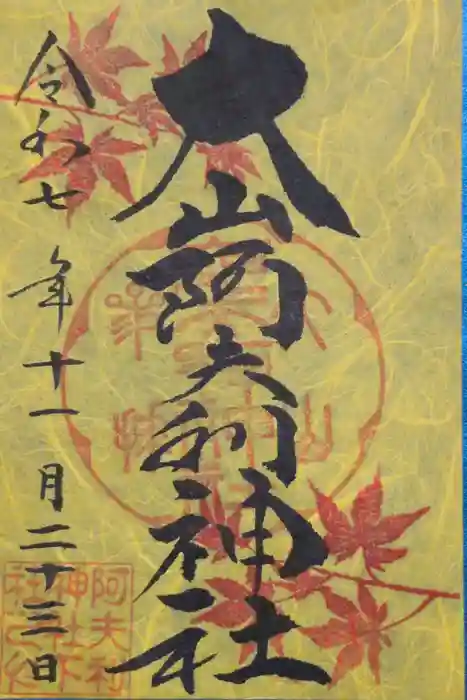 大山阿夫利神社
令和七年十一月二十三日
阿夫利
神社下
社之処